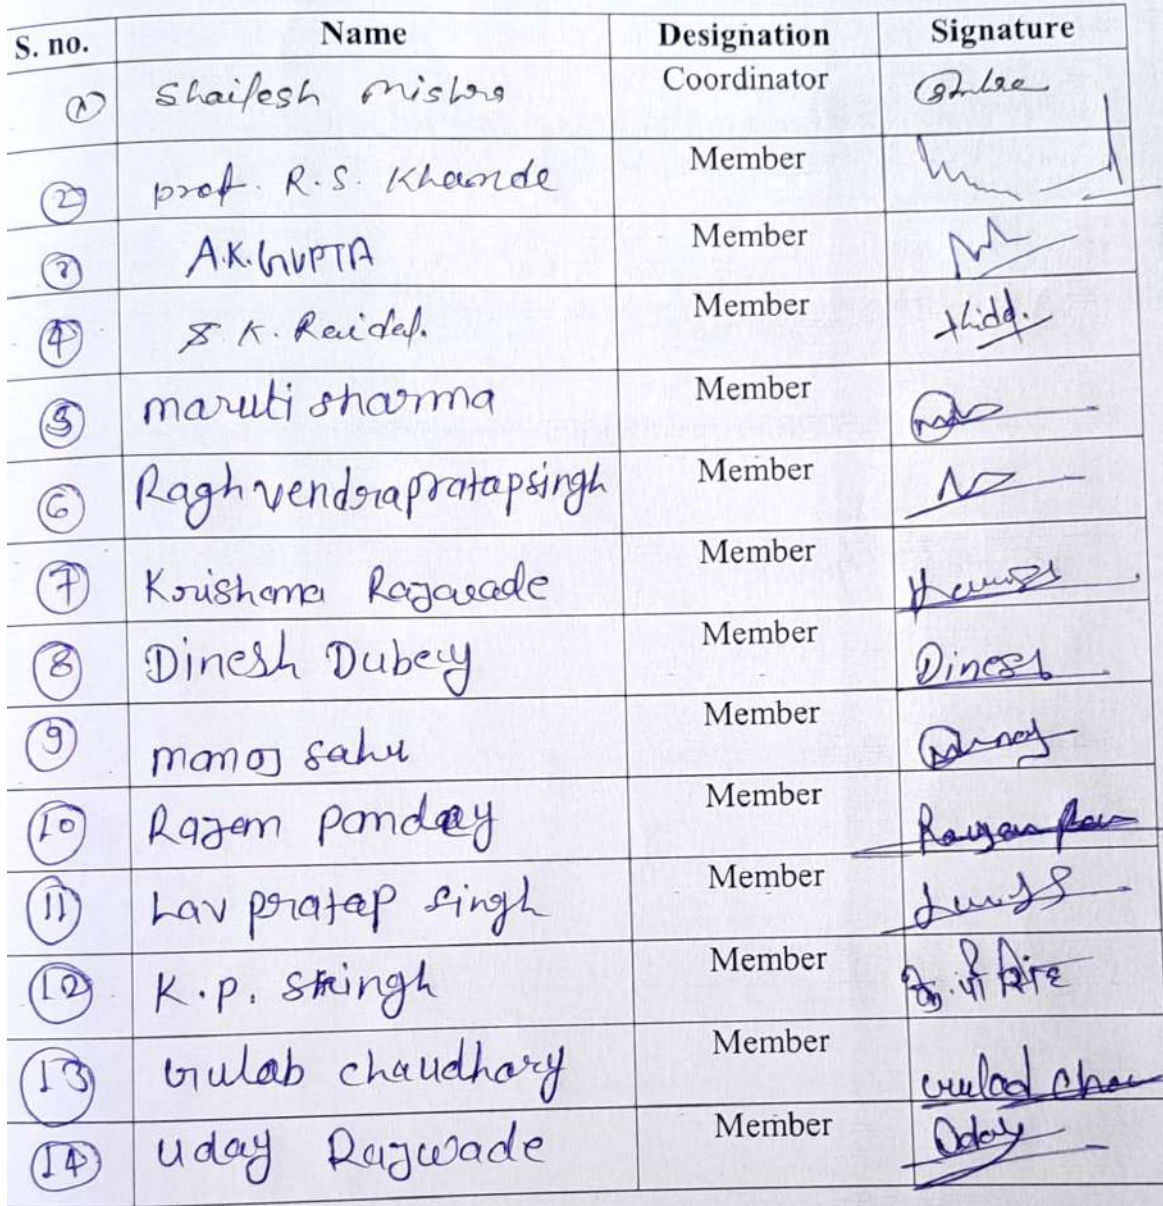 S. no. Name Designation Signature
1 Shailesh mishra Coordinator
2 prof. R.S. Khande Member
3 A.K. GUPTA Member
4 S.K. Member
5 maruti sharma Member
6 Raghvendrapratapsingh Member
7 Krishana Rajwade Member
8 Dinesh Dubey Member Dinesh
9 manoj sahu Member Manoj
10 Rajan panday Member
11 Lav pratap singh Member
12 K.p. singh Member
13 Gulab chaudhary Member
14 Uday Rajwade Member Uday